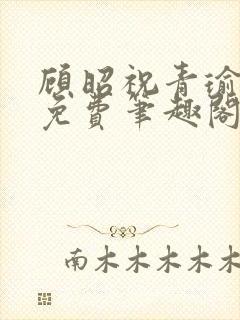 顾昭祝青瑜
免费笔趣阁
南木木木木木